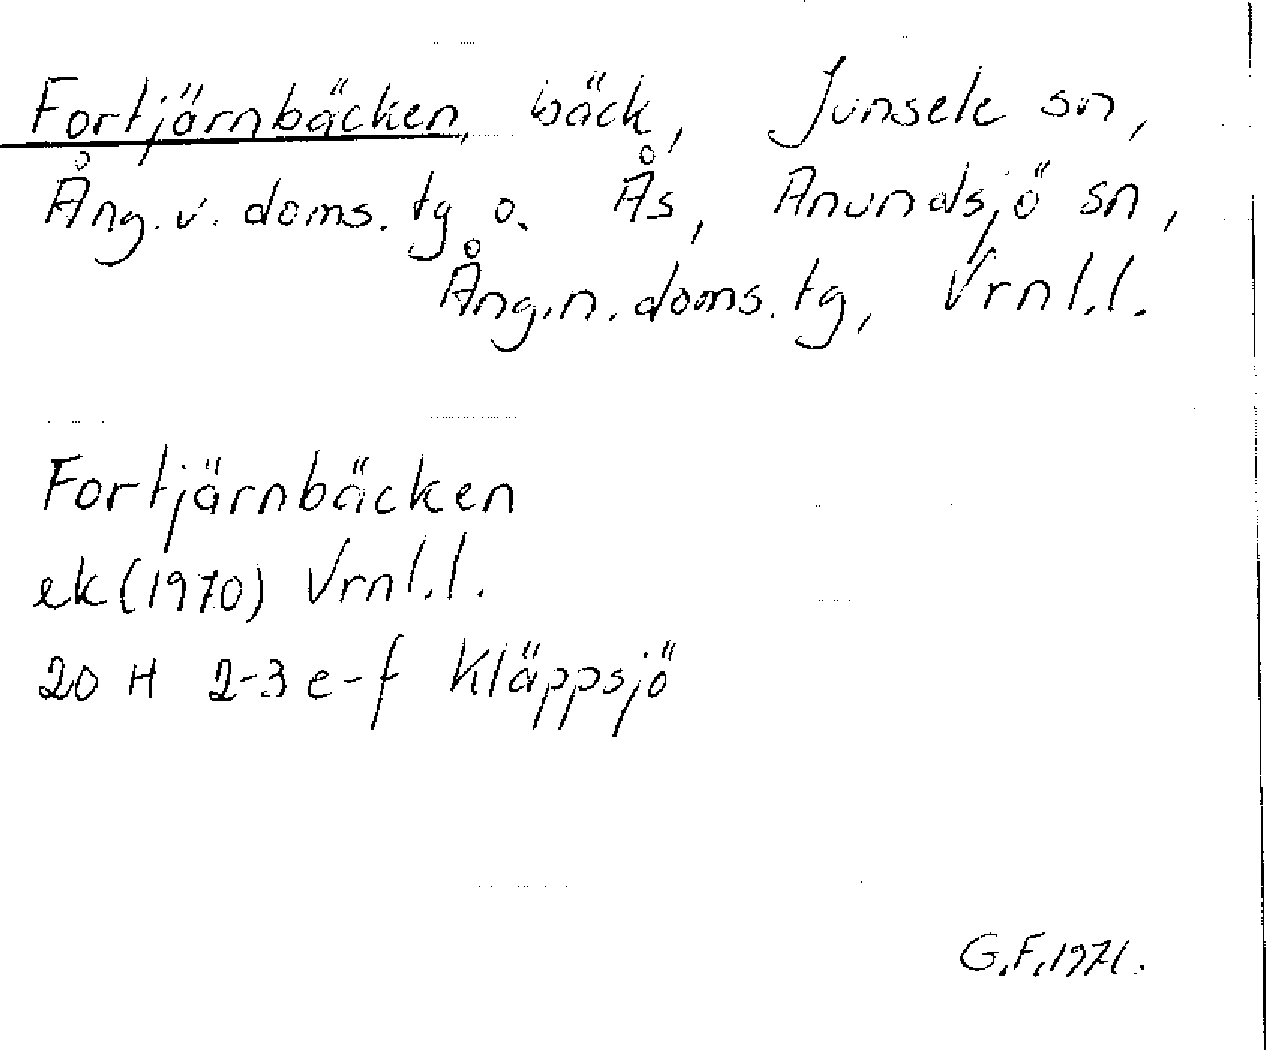 Fortjärnbäcken, bäck, Junsele sn,
Ång.v.doms.tg o. Ås, Anundsjö sn,
Ång.n.doms.tg, Vrnl.l.
Fortjärnbäcken
ek(1970) Vrnl.l.
20 H 2-3 e-f Kläppsjö
G.F.1971.